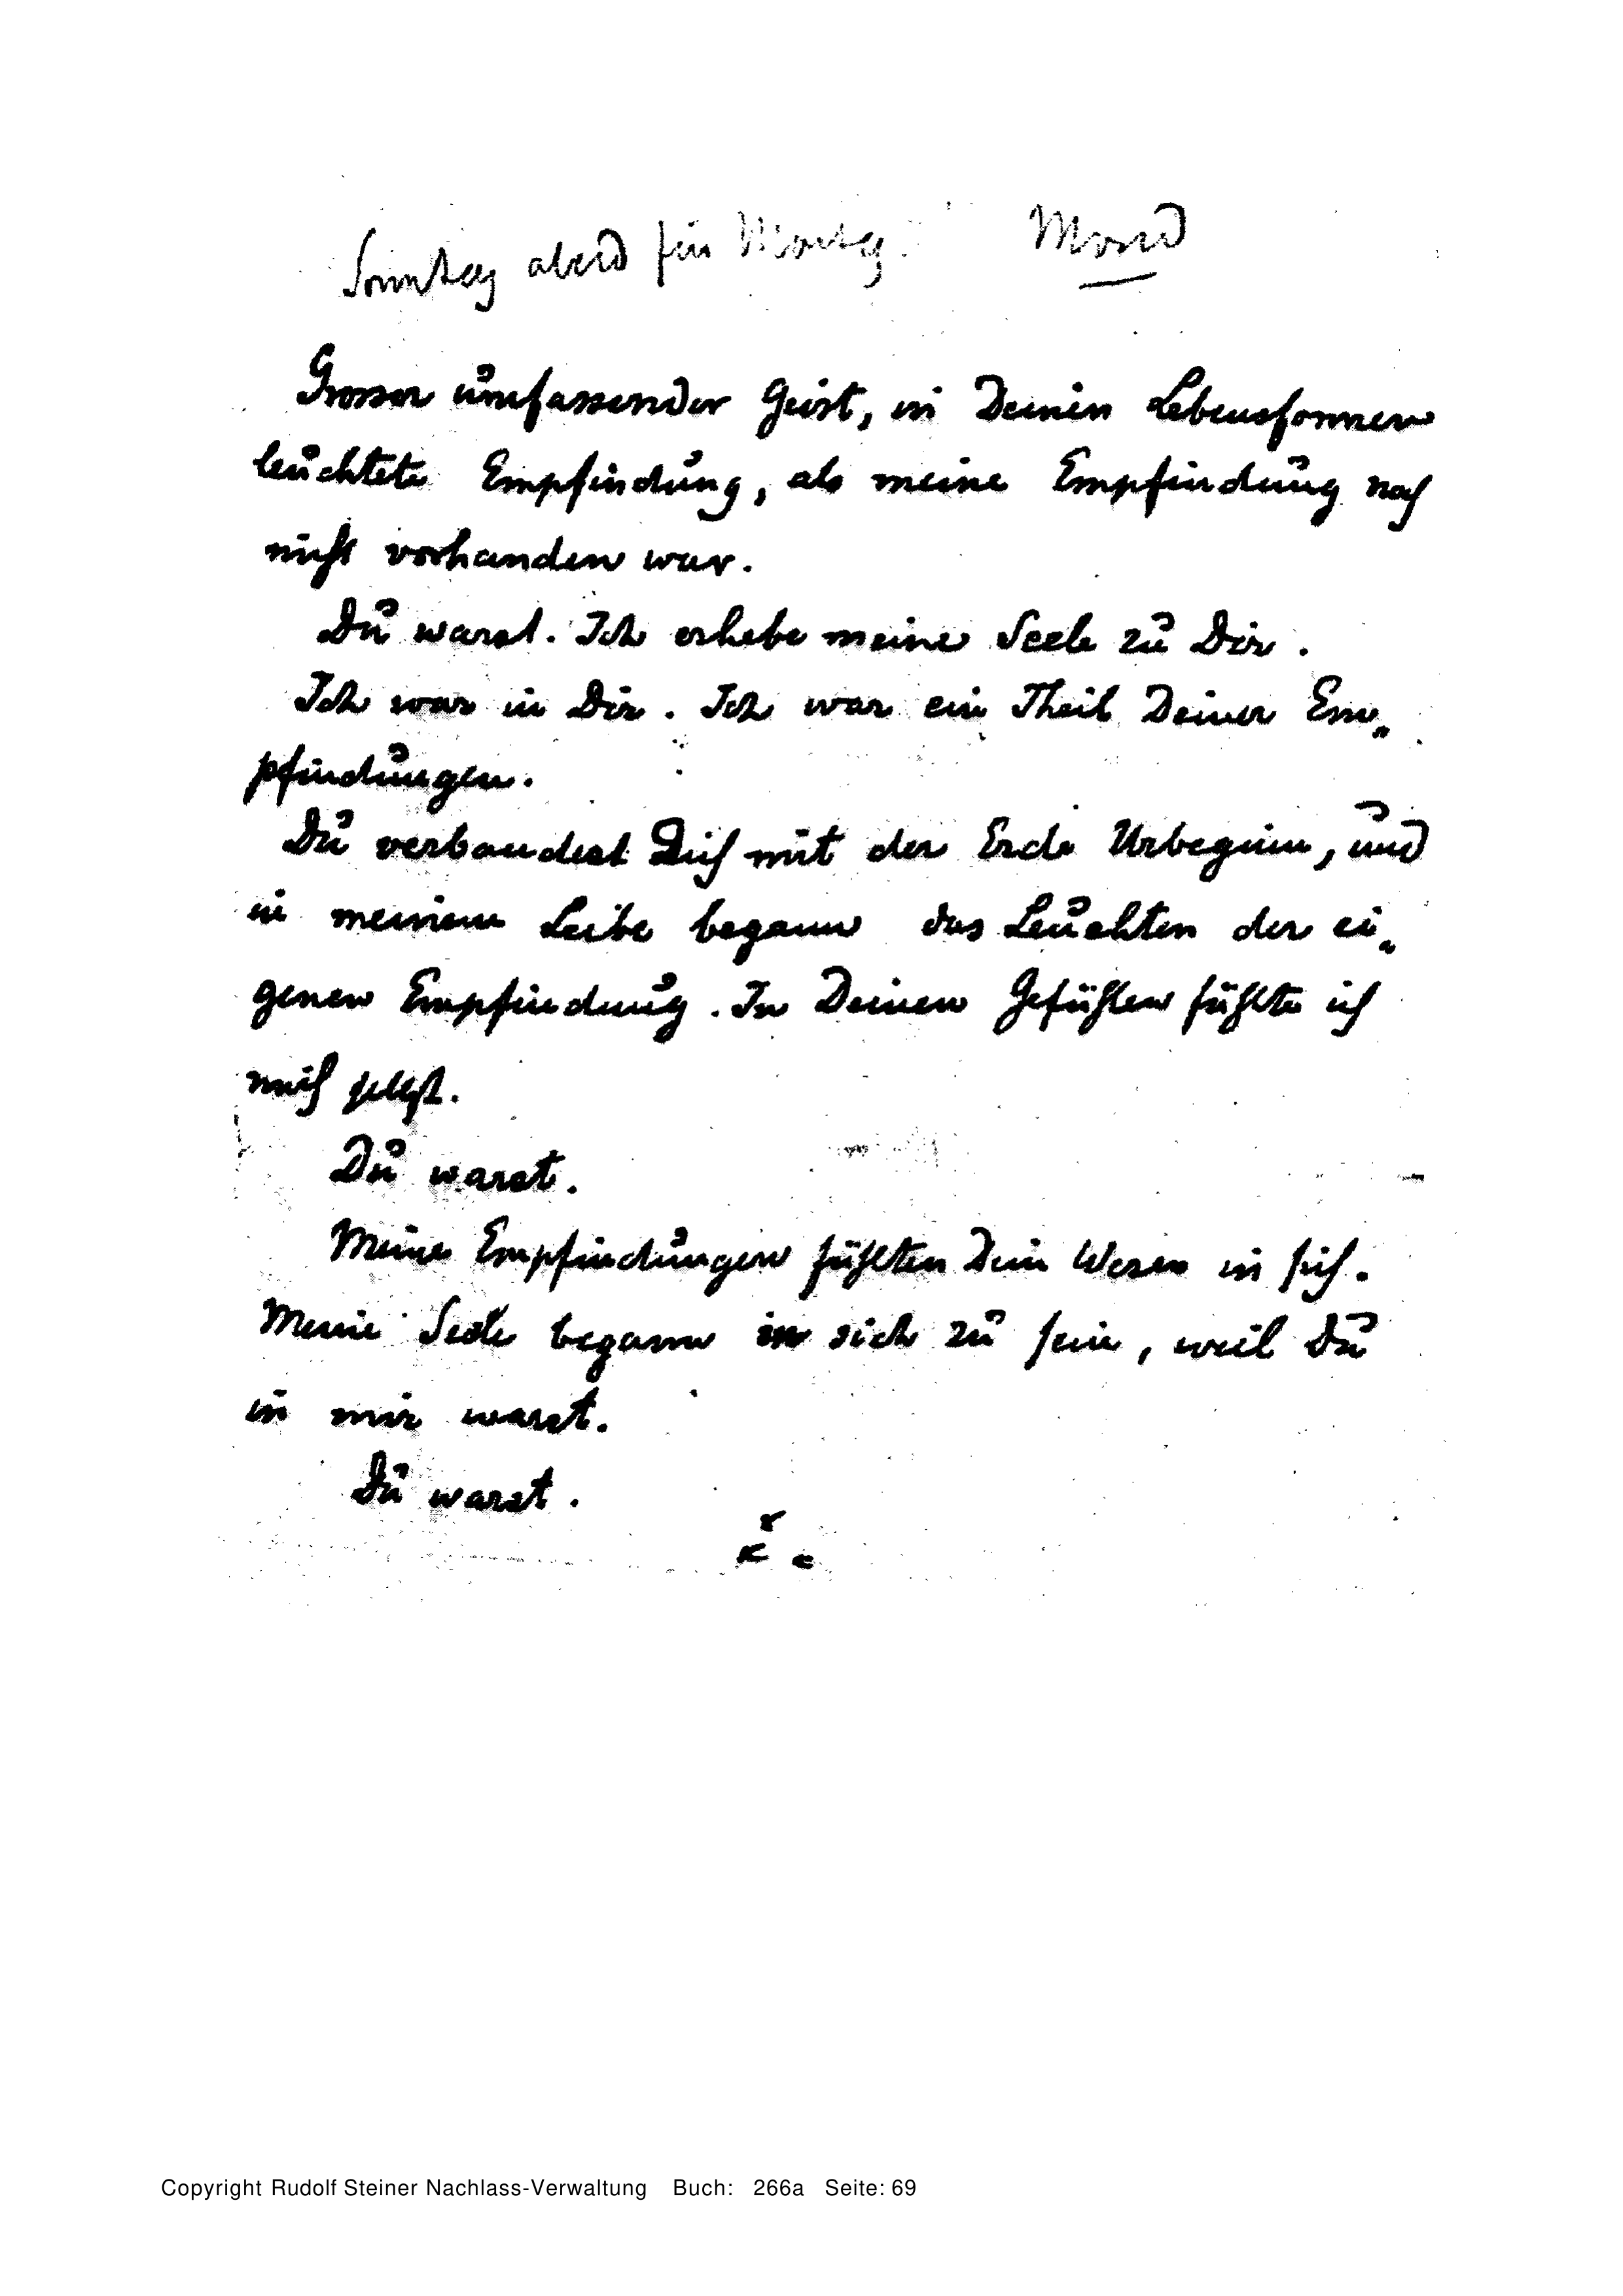 Sonntag abend für Montag. Mond
Grosser umfassender Geist, in Deinen Lebensformen
leuchtete Empfindung, als meine Empfindung noch
nicht vorhanden war.
Du warst. Ich erhebe meine Seele zu Dir.
Ich war in Dir. Ich war ein Theil Deiner Em„
pfindungen.
Du verbandest Dich mit der Erde Urbeginn, und
in meinem Leibe begann das Leuchten der ei„
genen Empfindung. In Deinen Gefühlen fühlte ich
mich selbst.
Du warst.
Meine Empfindungen fühlten Dein Wesen in sich.
Meine Seele begann in sich zu sein, weil Du
in mir warst.
Du warst.
Copyright Rudolf Steiner Nachlass-Verwaltung Buch: 266a Seite: 69